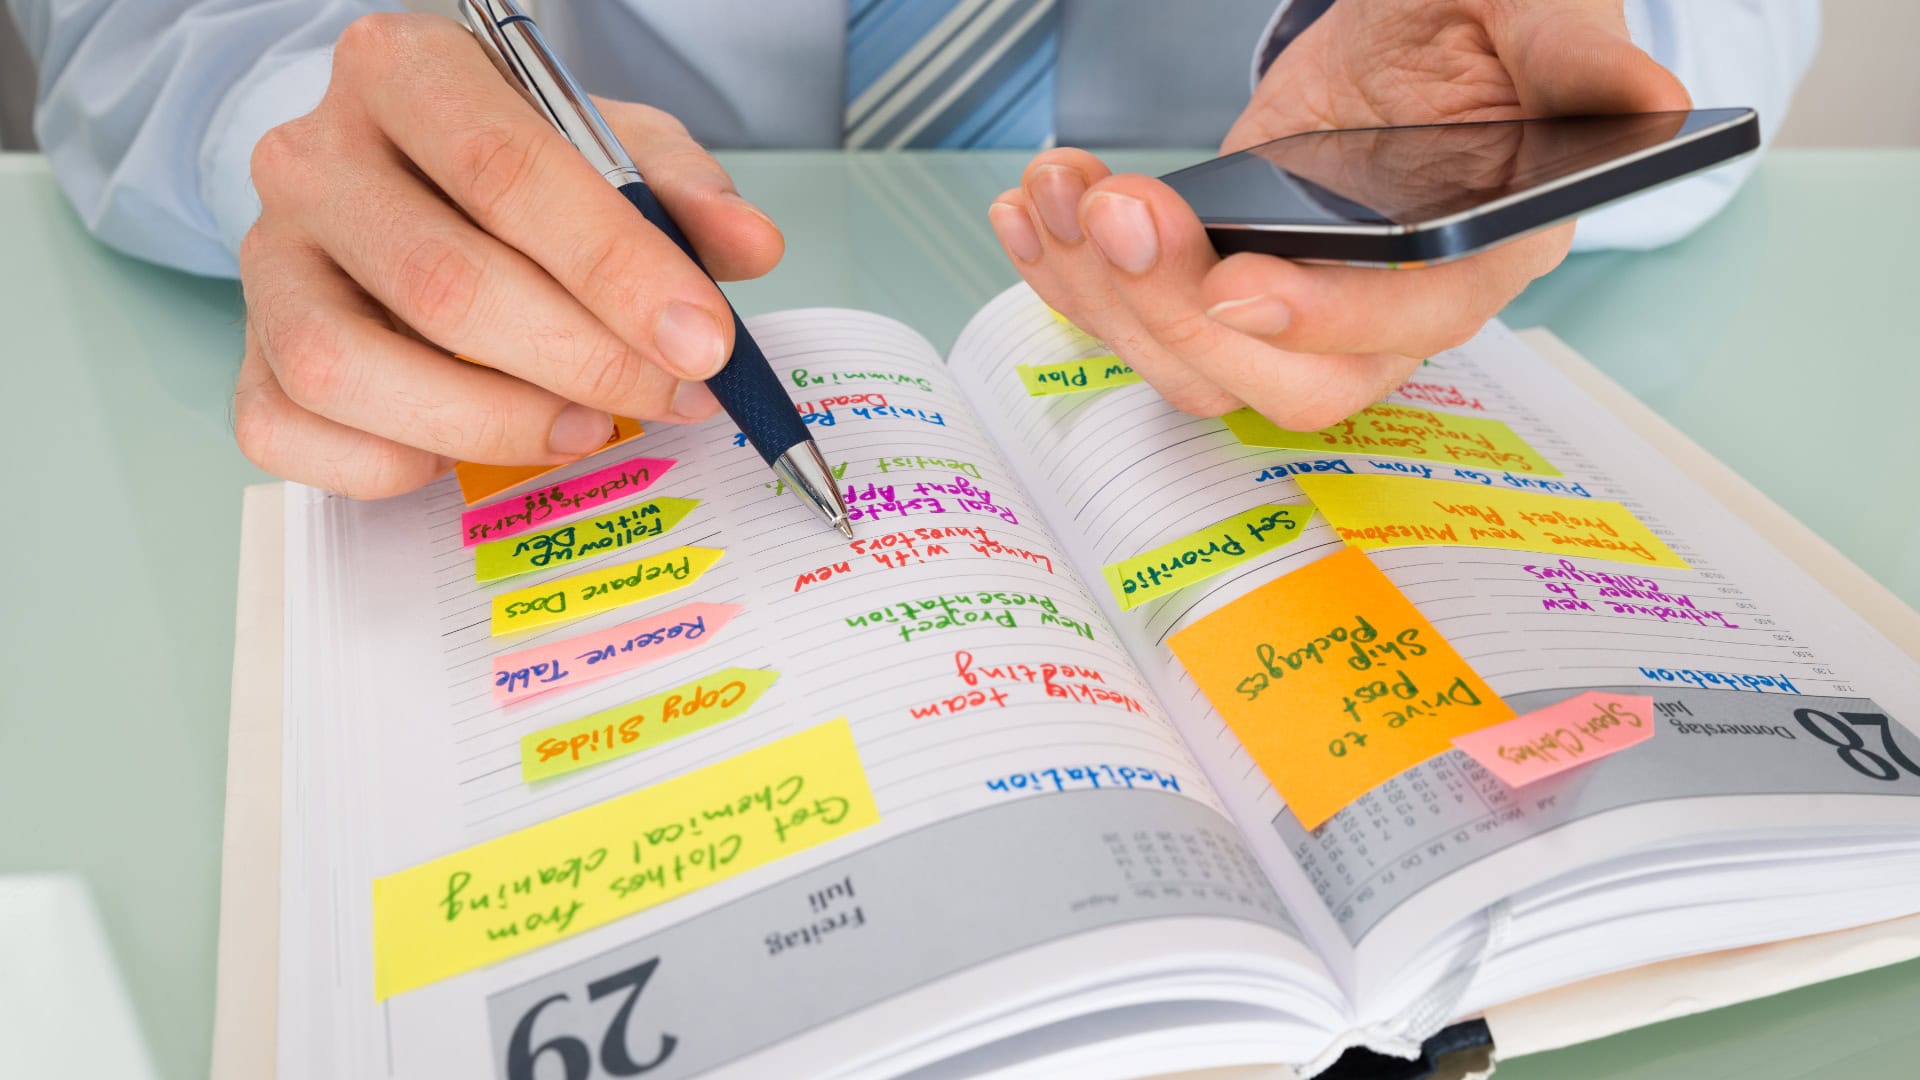 28
Donnerstag
Juli
Meditation
Introduce new
Manger to
colleagues
Prepare new Milestone
Project Plan
Pickup Car from Dealer
Select Service
Providers for
Review
Set Prioritie
Plan
Drive to
Post
Ship
Packages
Sport Clothes
29
Freitag
Juli
August
Meditation
Weekly team
meeting
New Project
Presentation
Lunch with new
Investors
Real Estate
Agent APP
Dentist A
Finish Re
Swimming
Get Clothes from
Chemical cleaning
Copy Slides
Reserve Table
Prepare Docs
Follow up
with DEv
Update Charts